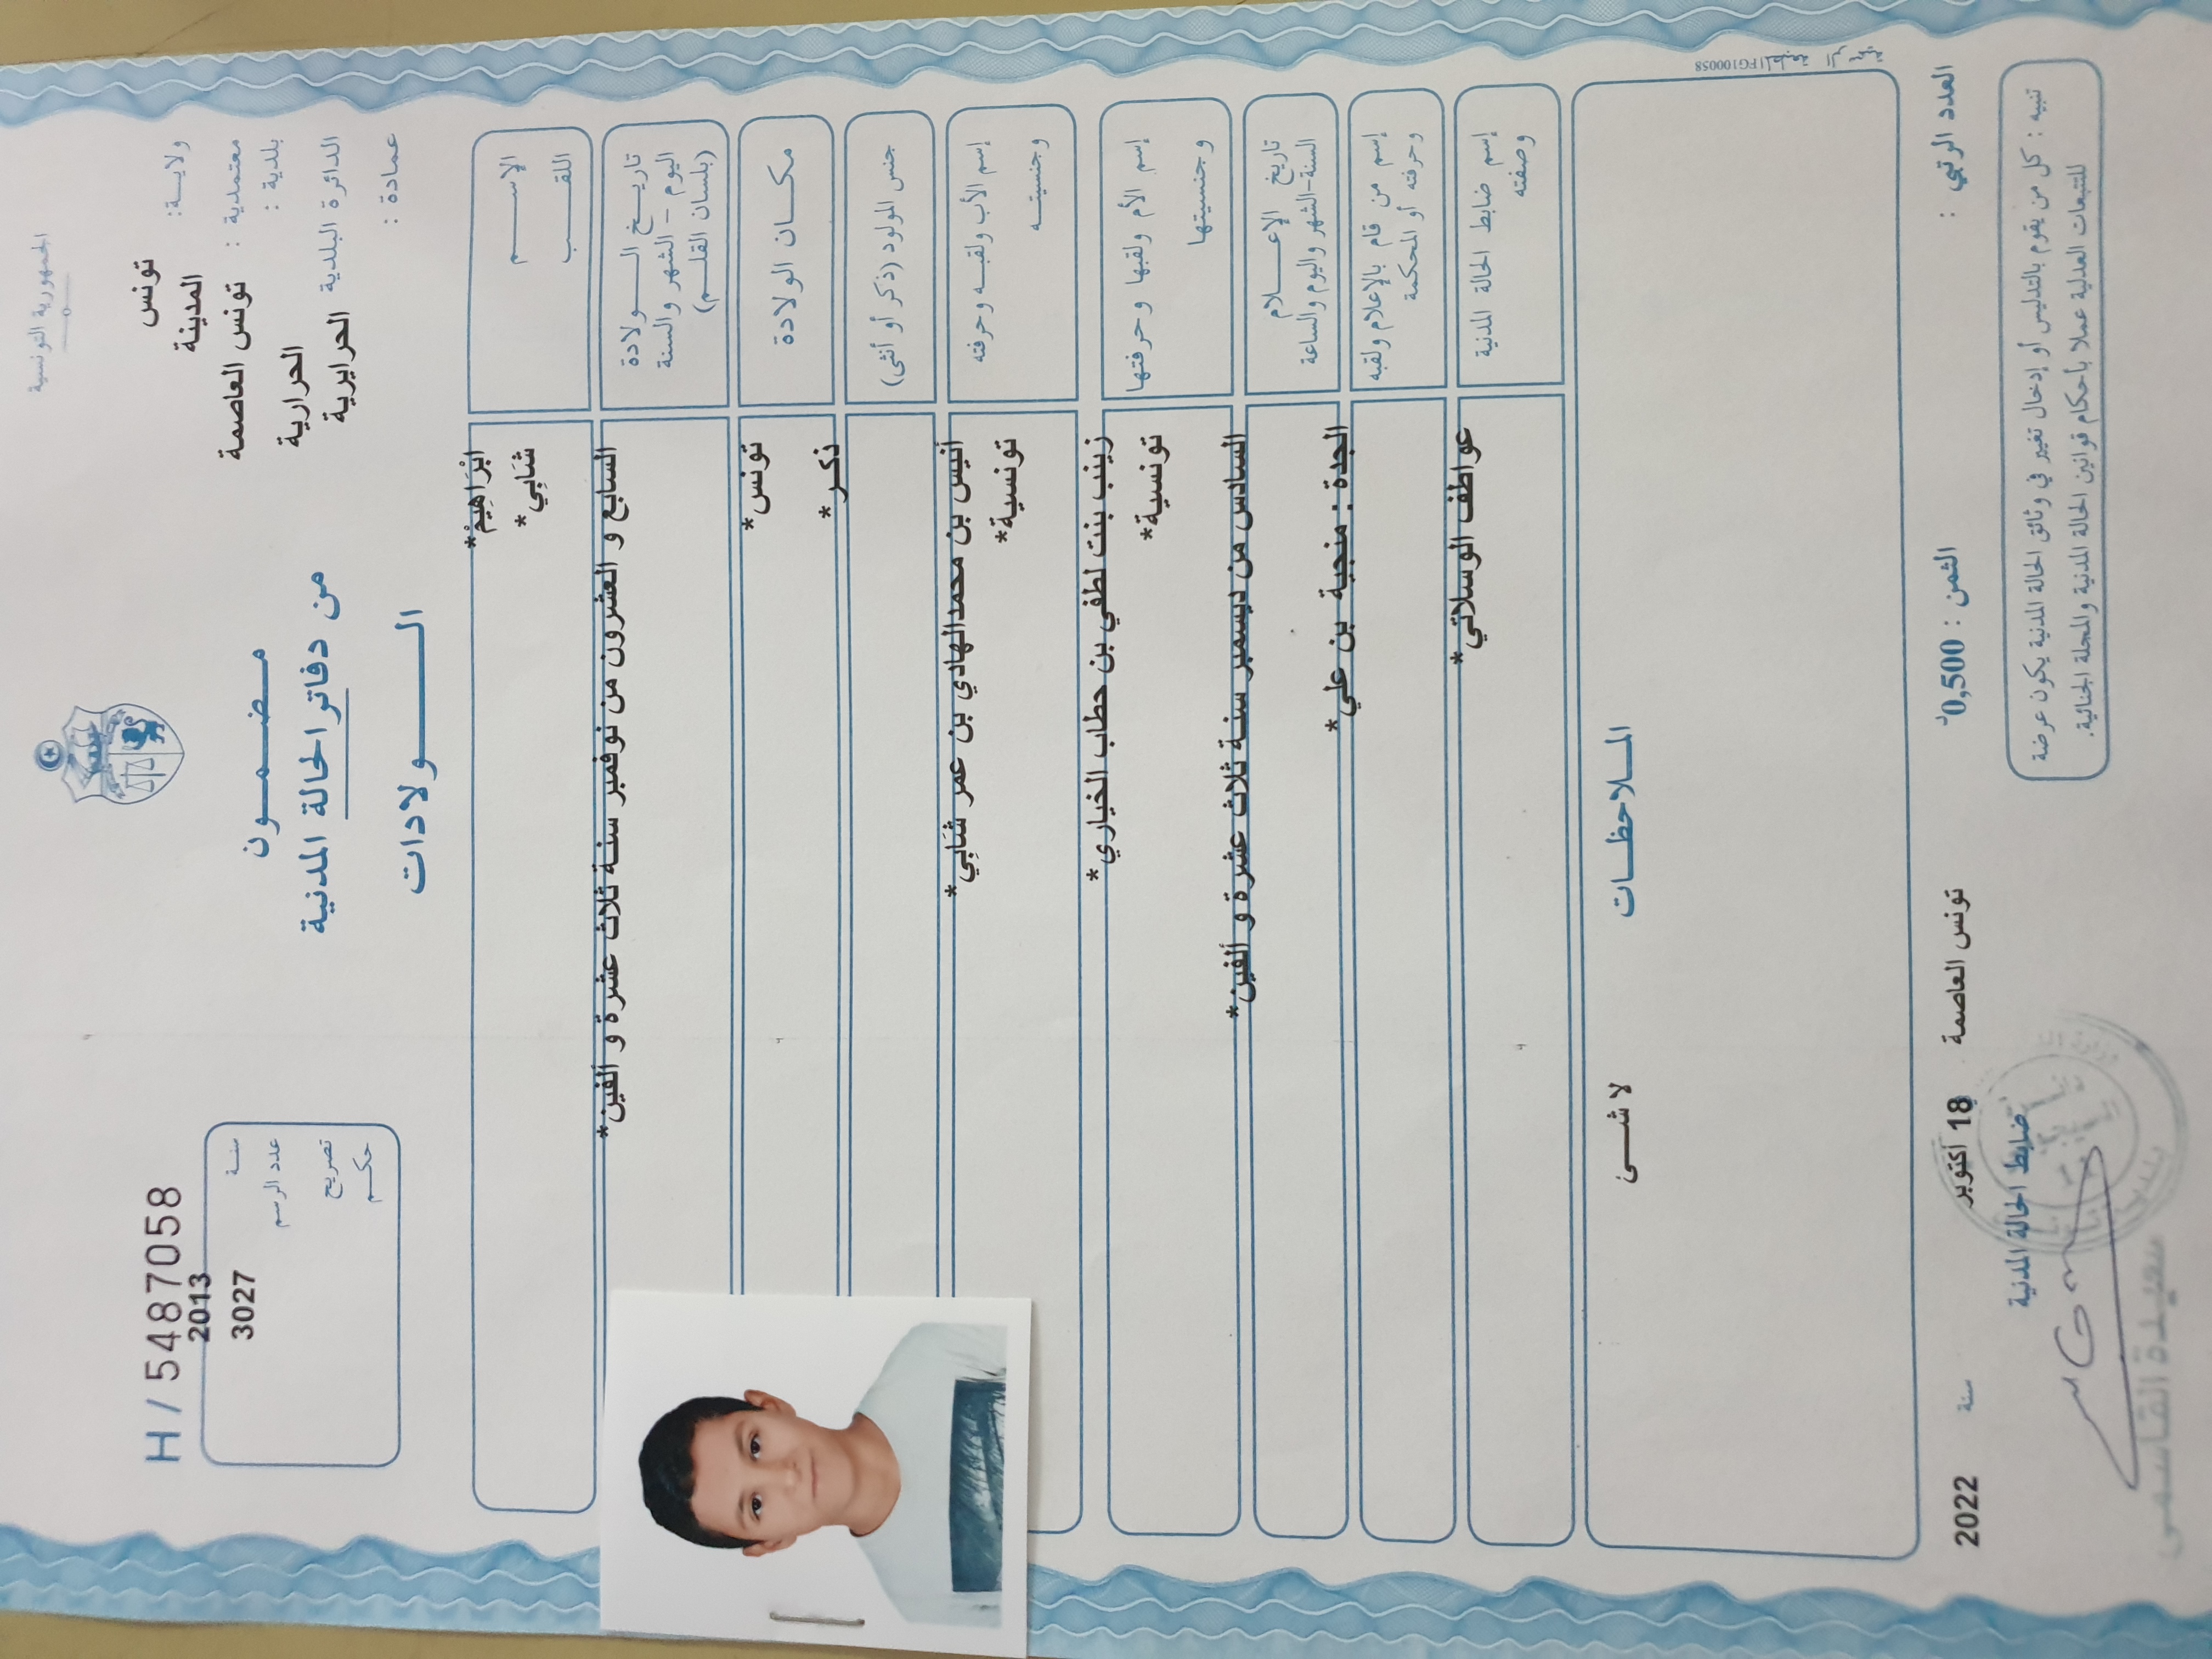 الجمهورية التونسية
ولايــة: تونس
المدينة
معتمدية : تونس العاصمة
بلدية : الحرارية
الدائرة البلدية الحرايرية
عمادة :
مـضـمــون
من دفاتر الحالة المدنية
الـــــولادات
H / 5487058
سنة 2013
عدد الرسم 3027
تصريح
حكـم
الإســـــم
اللقـــب
ابْرَاهِيْمْ*
شَابِي*
تاريــخ الـــــولادة
اليوم - الشهر والسنة
(بلسان القلــم)
السابع و العشرون من نوفمبر سنة ثلاث عشرة و ألفين*
مكــان الولادة
تونس*
جنس المولود (ذكر أو أنثى)
ذكر*
إسم الأب ولقبــه وحرفته
وجنسيتــه
أنيس بن محمدالهادي بن عمر شَابِي*
تونسية*
إسم الأم ولقبها وحرفتها
وجنسيتها
زينب بنت لطفي بن حطاب الخياري*
تونسية*
تاريخ الإعـــلام
السنة-الشهر واليوم والساعة
السادس من ديسمبر سنة ثلاث عشرة و ألفين*
إسم من قام بالإعلام ولقبه
وحرفته أو المحكمة
الجدة : منجية بن علي*
إسم ضابط الحالة المدنية
وصفته
عواطف الوسلاتي*
المــلاحظــات
لا شــئ
المطبعة الرسمية FG100058
العدد الرتبي :
الثمن : 0,500د
تونس العاصمة 18 أكتوبر سنة 2022
ضابط الحالة المدنية
تنبيه : كل من يقوم بالتدليس أو إدخال تغيير في وثائق الحالة المدنية يكون عرضة
للتتبعات العدلية عملا بأحكام قوانين الحالة المدنية والمجلة الجنائية.
سعيدة القاسمي